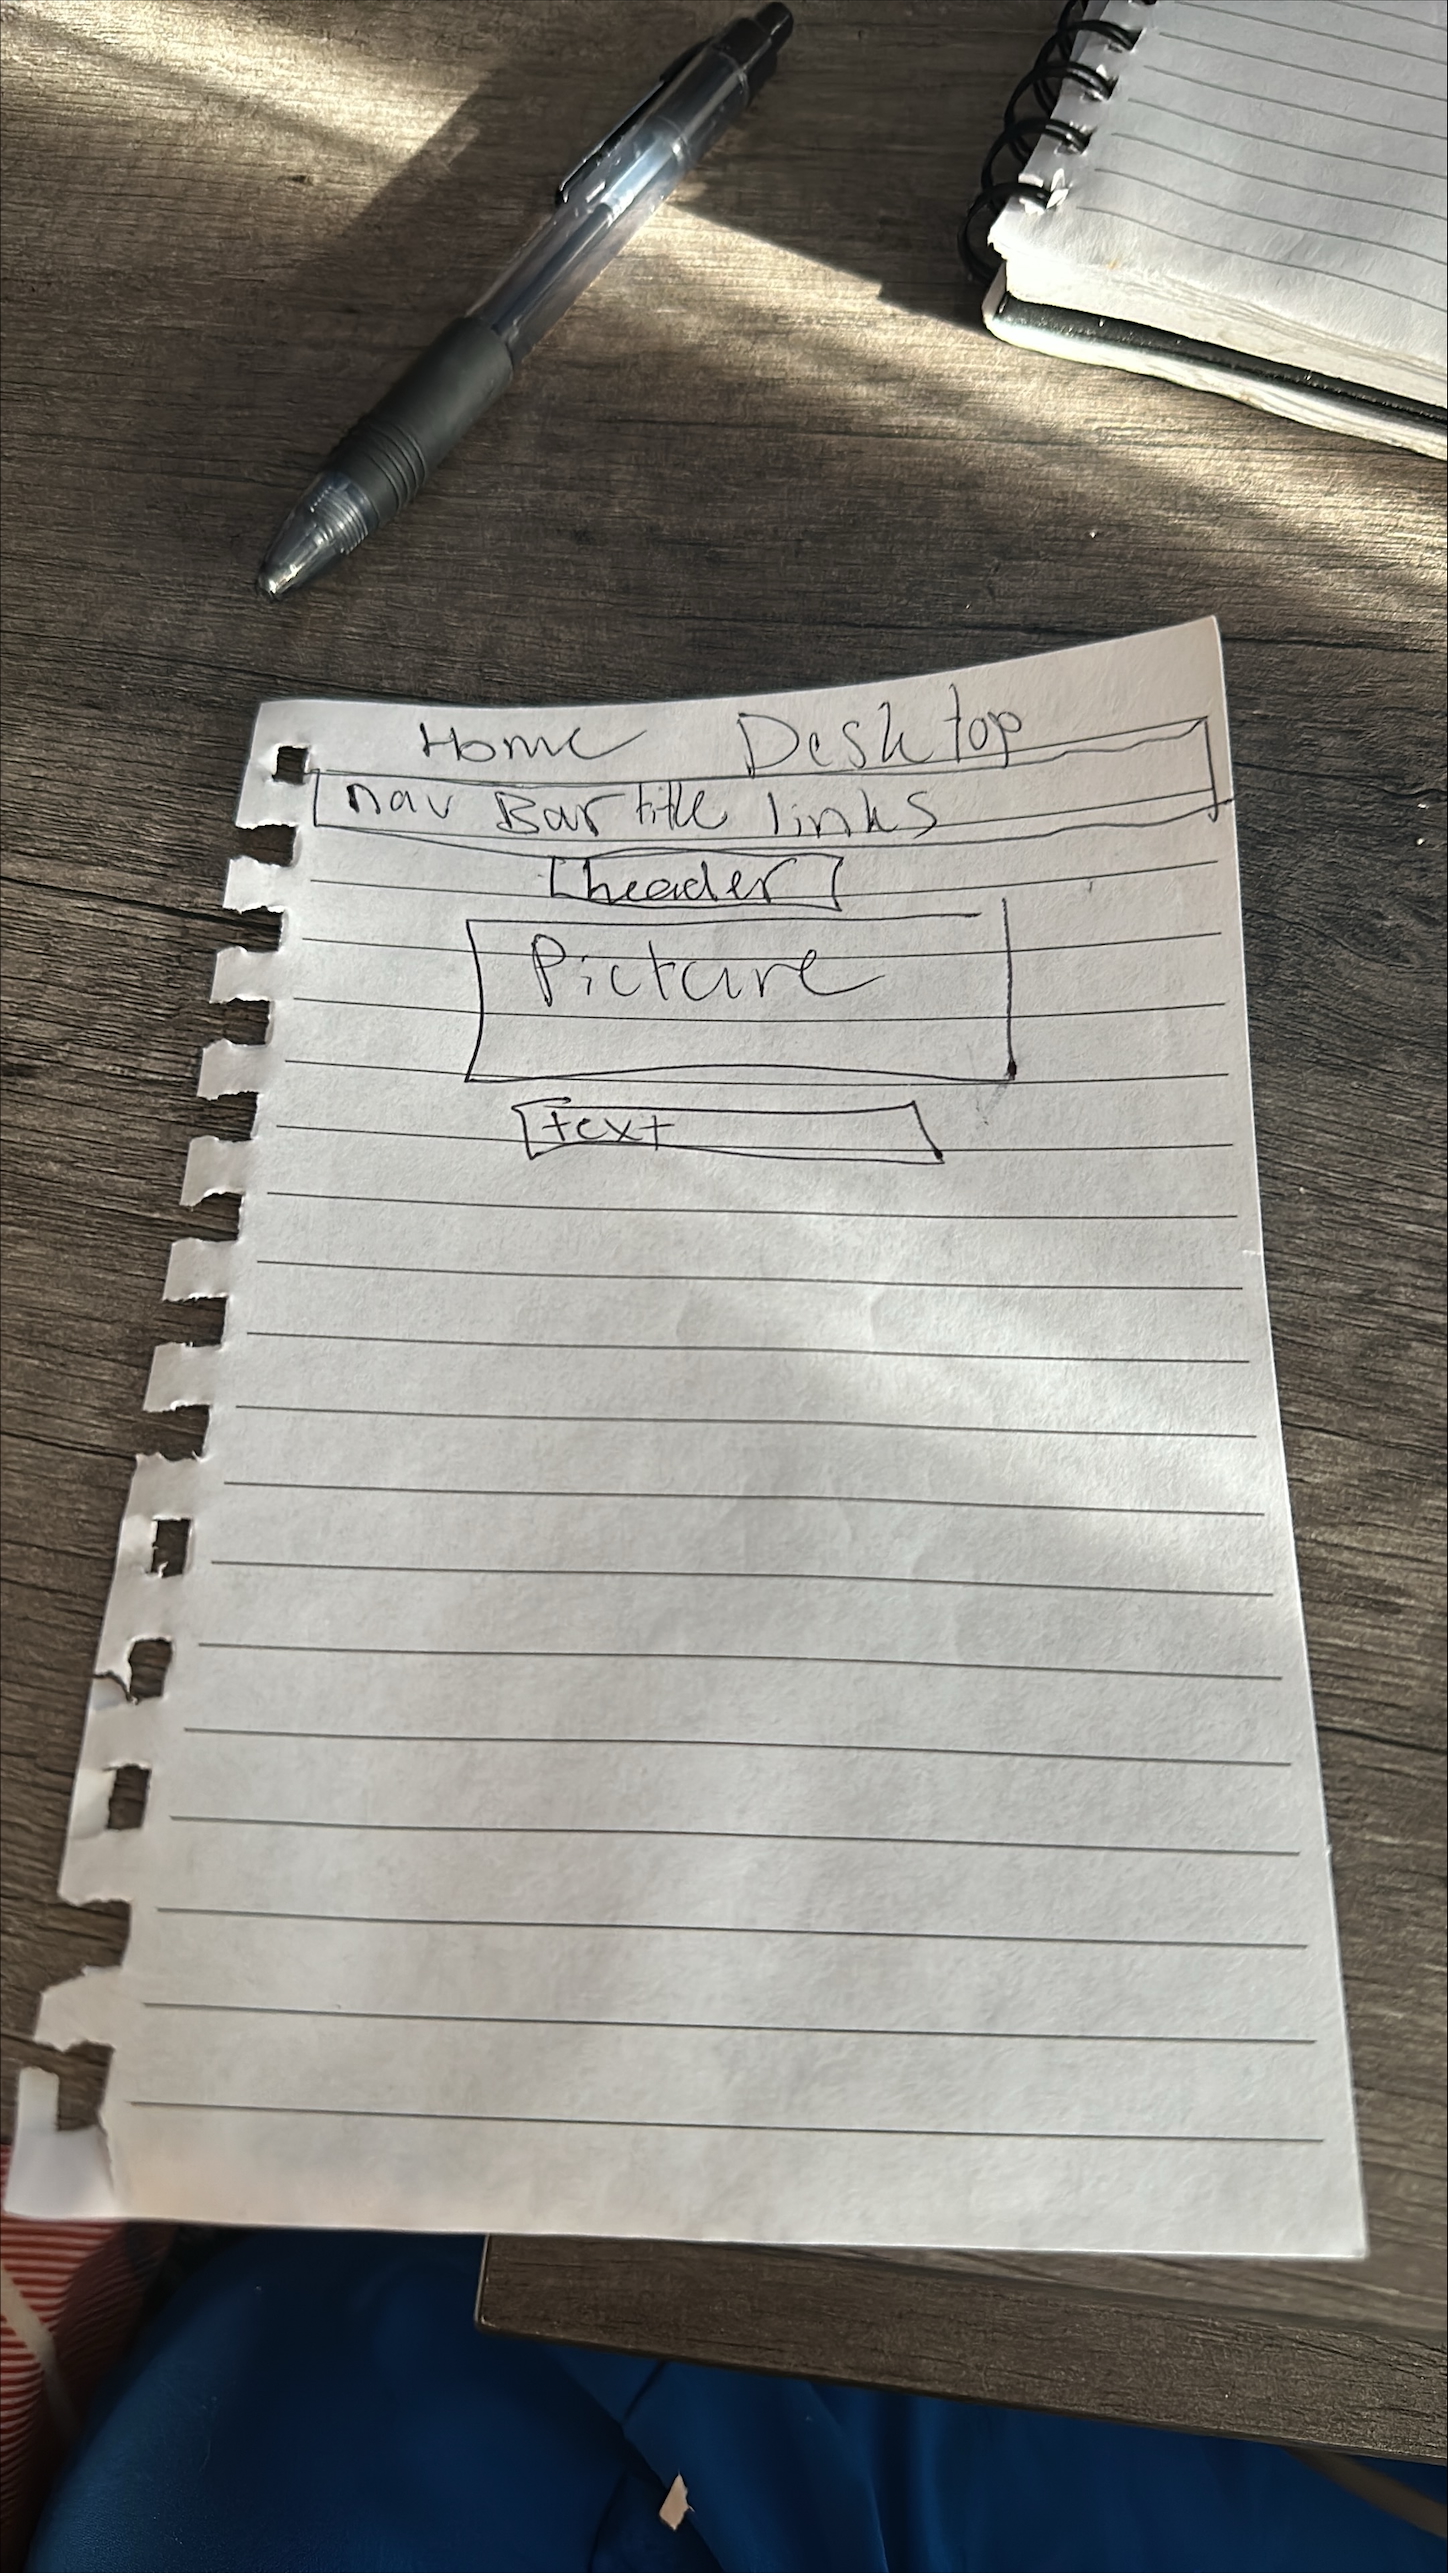 Home Desktop
nav Bar title links
header
Picture
text